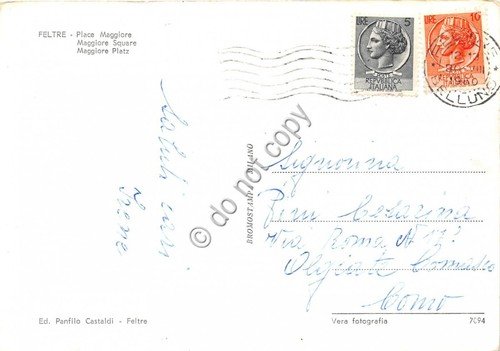 FELTRE - Place Maggiore
Maggiore Square
Maggiore Platz
LIRE 5
REPUBBLICA
ITALIANA
LIRE 10
REPUBBLICA
ITALIANA
BELLUNO
Saluti cari
Irene
© do not copy
BROMOSTAMPA MILANO
Signorina
Pini
Via Roma N
Olgiate Comasco
Como
Ed. Panfilo Castaldi - Feltre
Vera fotografia
7094